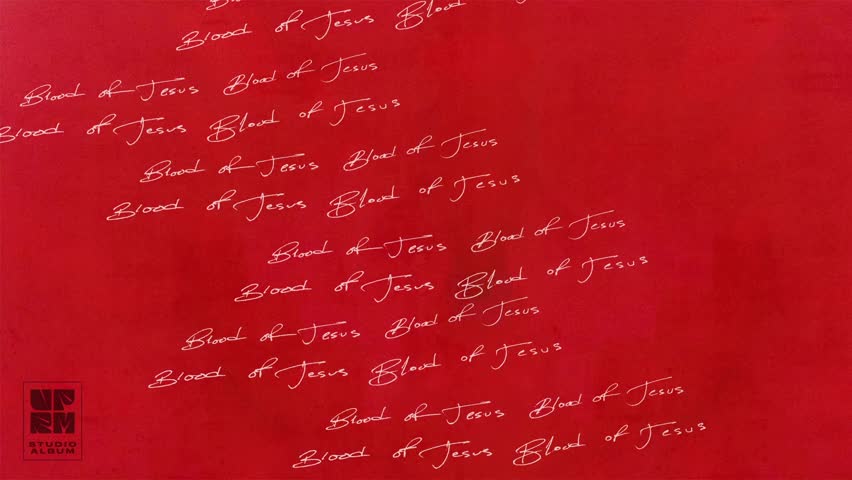 Blood of Jesus Blood
Blood of Jesus Blood of Jesus
Blood of Jesus Blood of Jesus
Blood of Jesus Blood of Jesus
Blood of Jesus Blood of Jesus
Blood of Jesus Blood of Jesus
Blood of Jesus Blood of Jesus
Blood of Jesus Blood of Jesus
Blood of Jesus Blood of Jesus
Blood of Jesus Blood of Jesus
Blood of Jesus Blood of Jesus
UPRM
STUDIO
ALBUM